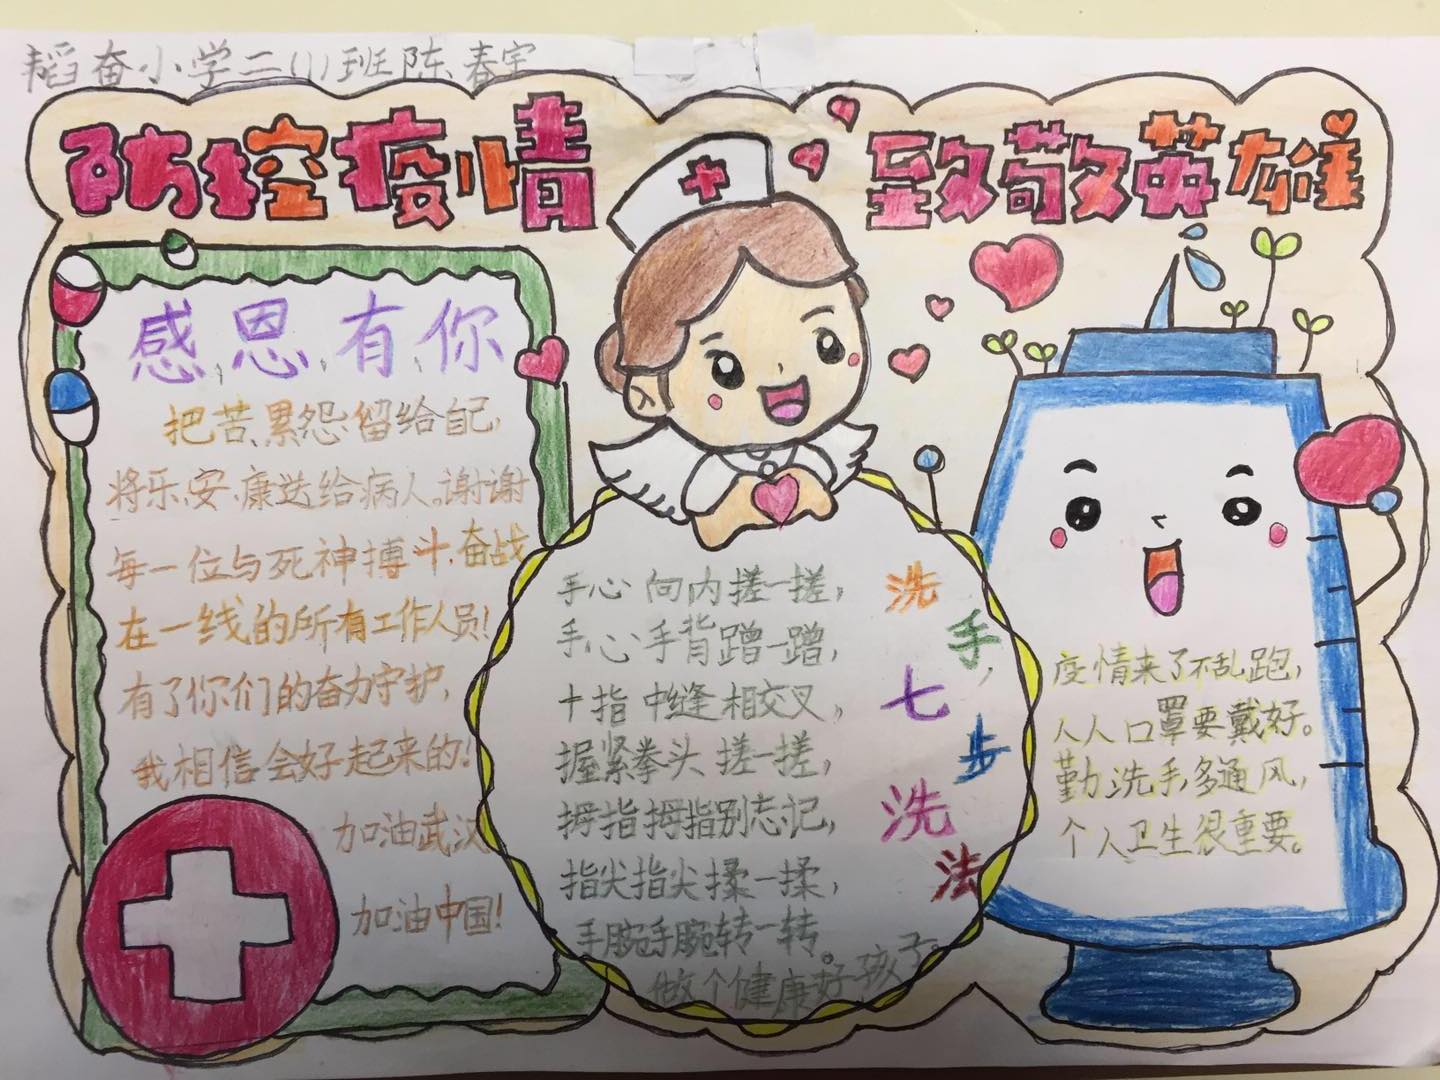 韬奋小学二(1)班陈春宇
防控疫情
致敬英雄
感恩有你
把苦、累、怨留给自己,
将乐、安、康送给病人。谢谢
每一位与死神搏斗,奋战
在一线的所有工作人员!
有了你们的奋力守护,
我相信会好起来的!
加油武汉
加油中国!
洗手,七步洗法
手心向内搓一搓,
手心手背蹭一蹭,
十指中缝相交叉,
握紧拳头搓一搓,
拇指拇指别忘记,
指尖指尖揉一揉,
手腕手腕转一转。
做个健康好孩子。
疫情来了不乱跑,
人人口罩要戴好。
勤洗手,多通风,
个人卫生很重要。